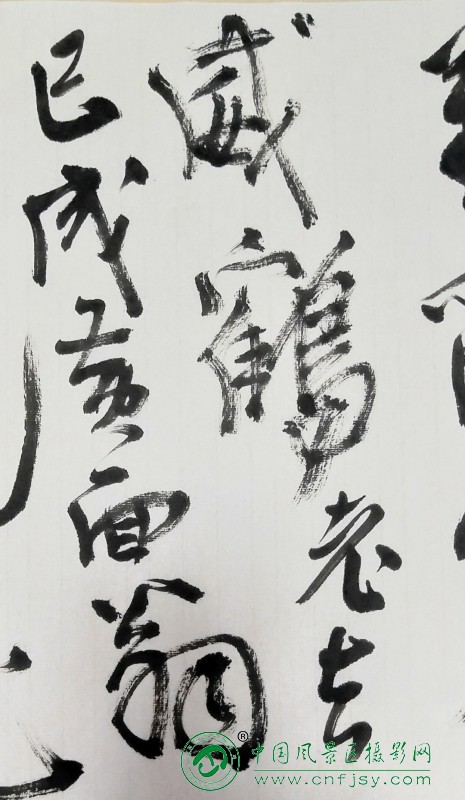 威鶴老去
已成黄面翁
®中国风景区摄影网
www.cnfjsy.com